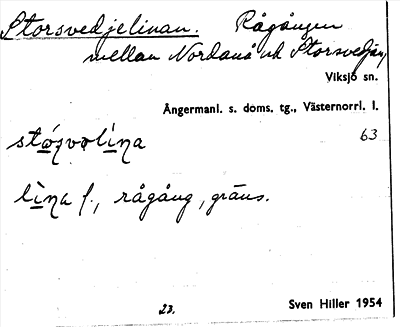 Storsvedjelinan. Rågången
mellan Nordanå och Storsvedjan,
Viksjö sn.
Ångermanl. s. doms. tg., Västernorrl. l.
63
lìna f., rågång, gräns.
23.
Sven Hiller 1954